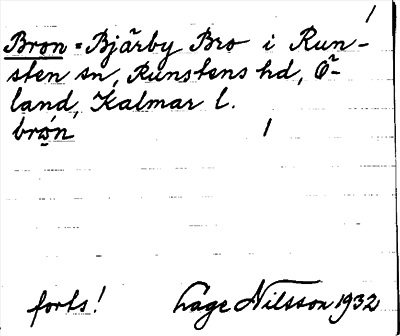 1
Bron = Bjärby Bro i Run-
sten sn, Runstens hd, Ö-
land, Kalmar l.
brón 1
forts! Lage Nilsson 1932